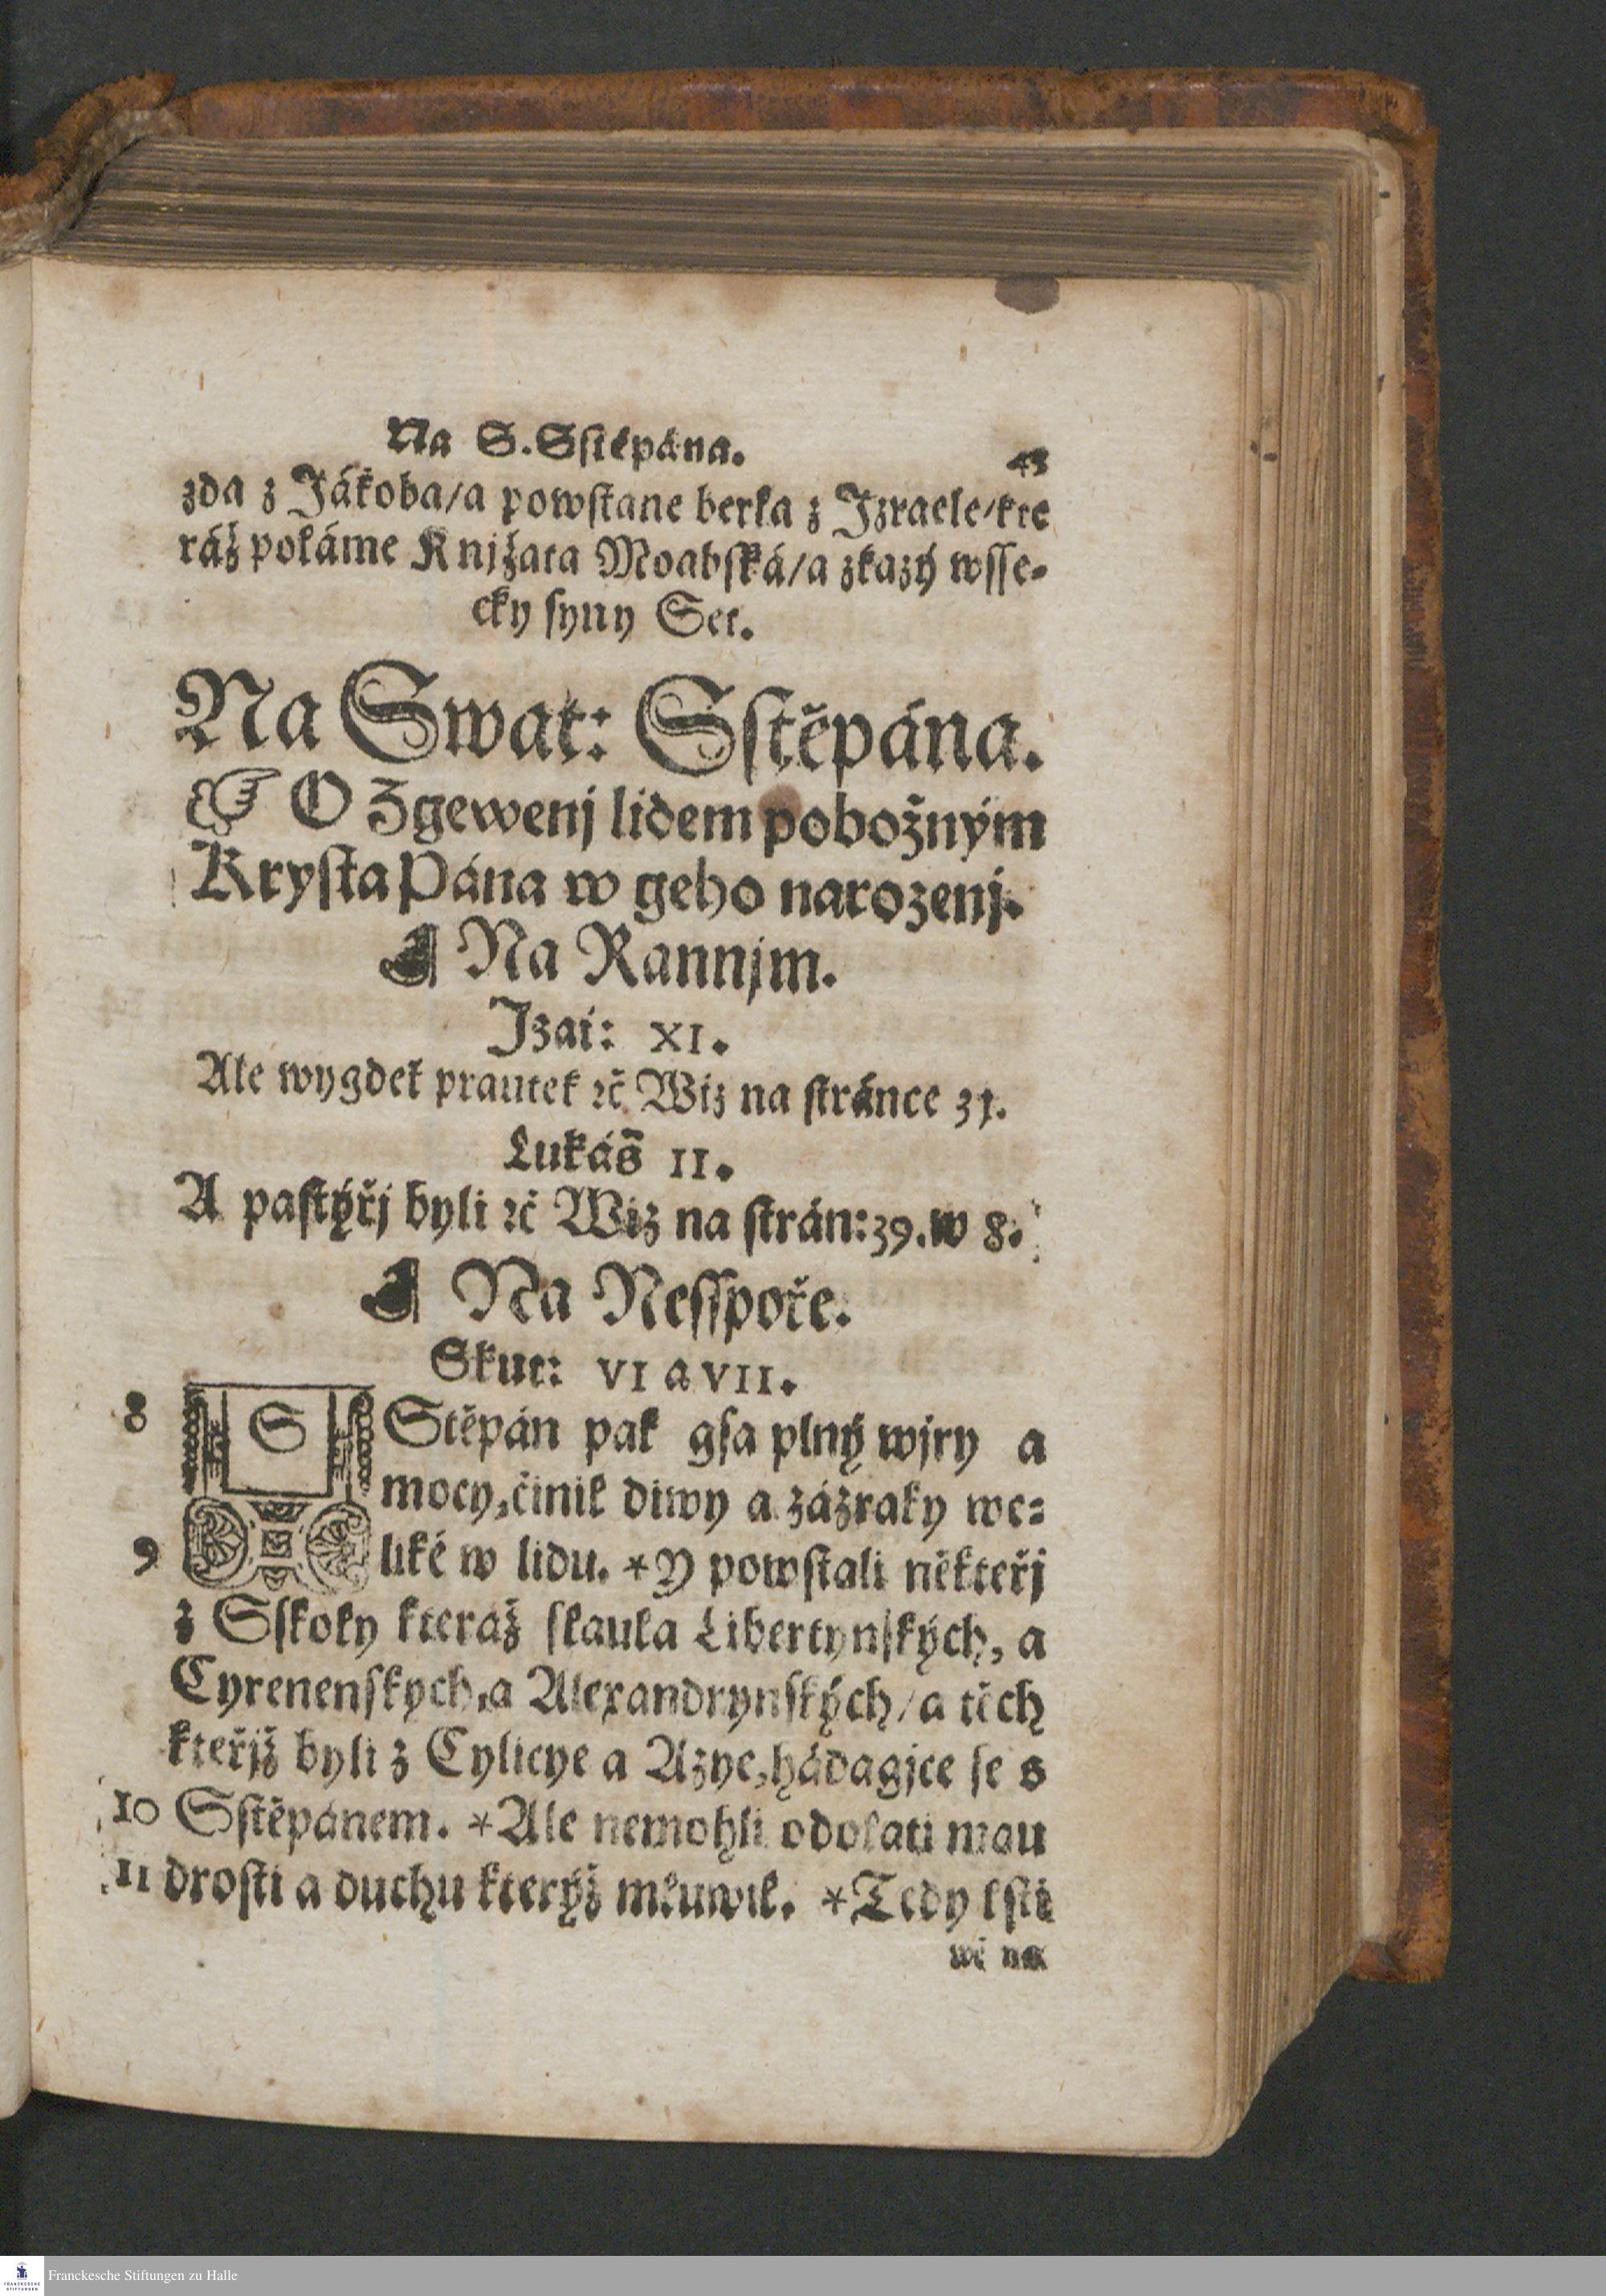 Na S. Sſtěpána. 43
zda z Jákoba/a powſtane berla z Jzraele/kte
ráž poláme Knjžata Moabſká/a zkazý wſſe-
cky ſyny Set.
Na Swat: Sſtěpána.
☞ O Zgewenj lidem pobožným
Kryſta Pána w geho narozenj.
Na Rannjm.
Jzai: XI.
Ale wygdet prautek ꝛč Wiz na ſtránce 31.
Lukáš II.
A paſtýřj byli ꝛč Wiz na ſtrán: 39. w 8.
Na Neſſpoře.
Skut: VI a VII.
8 SStěpán pak gſa plný wjry a
mocy, činil diwy a zázraky we-
9 liké w lidu. *Y powſtali někteřj
z Sſkoly kteráž ſlaula Libertynſkých, a
Cyrenenſkych, a Alexandrynſkých/a těch
kteřjž byli z Cylicye a Azye, hádagjce ſe s
10 Sſtěpánem. *Ale nemohli odolati mau
11 droſti a duchu kterýž mluwil. *Tedy lſti
wě na
Franckesche Stiftungen zu Halle
FRANCKESCHE
STIFTUNGEN